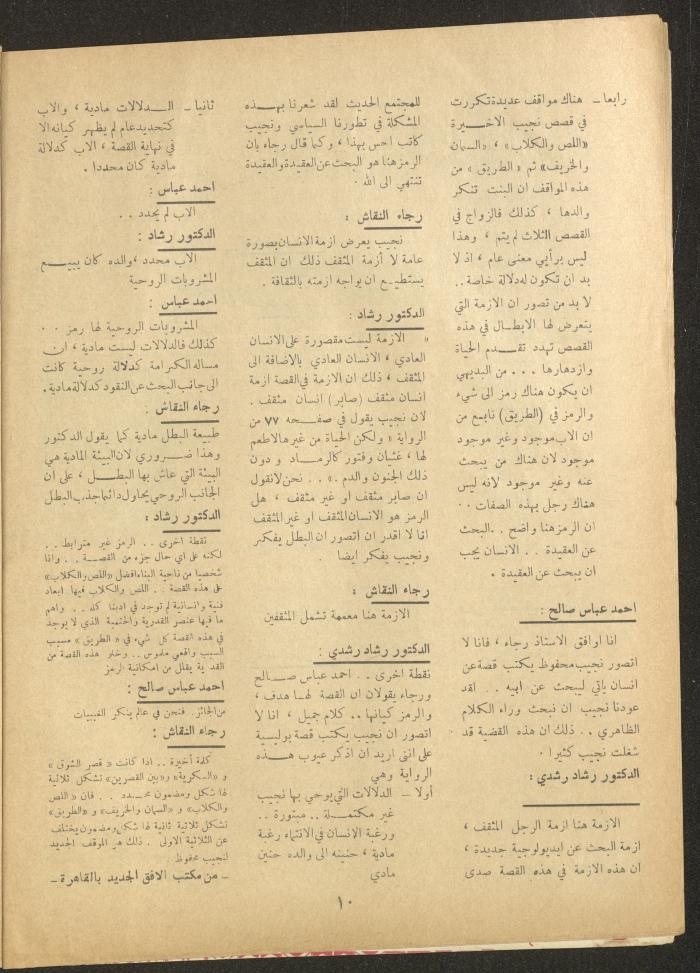 رابعا ـ هناك مواقف عديدة تكررت
في قصص نجيب الاخـــيرة
«اللص والكلاب» ، «السمان
والخريف» ثم « الطريق » من
هذه المواقف ان البنت تنكر
والدها ، كذلك فالزواج في
القصص الثلاث لم يتم ، وهذا
ليس برأيي معنى عام ، اذ لا
بد ان تكون له دلالة خاصة ..
لا بد من تصور ان الازمة التي
يتعرض لها الابطـال في هذه
القصص تهدد تقـــدم الحياة
وازدهارها ... من البديهي
ان يكون هناك رمز الى شيء
والرمز في (الطريق) نابع من
ان الاب موجود وغير موجود
موجود لان هناك من يبحث
عنه وغير موجود لانه ليس
هناك رجل بهذه الصفات ..
ان الرمز هنا واضح .. البحث
عن العقيدة .. الانسان يجب
ان يبحث عن العقيدة .
احمد عباس صالح :
انا اوافق الاستاذ رجاء ، فانا لا
اتصور نجيب محفوظ يكتب قصة عن
انسان يأتي ليبحث عن ابيه .. لقد
عودنا نجيب ان نبحث وراء الكلام
الظاهري .. ذلك ان هذه القضية قد
شغلت نجيب كثيرا .
الدكتور رشاد رشدي :
الازمة هنا ازمة الرجل المثقف ،
ازمة البحث عن ايديولوجية جديدة ،
ان هذه الازمة في هذه القصة صدى
للمجتمع الحديث لقد شعرنا بهـــذه
المشكلة في تطورنا السياسي ونجيب
كاتب احس بهذا ، وكما قال رجاء بان
الرمز هنا هو البحث عن العقيدة والعقيدة
تنتهي الى الله .
رجاء النقاش :
نجيب يعرض ازمة الانسان بصورة
عامة لا أزمة المثقف ذلك ان المثقف
يستطيـع ان يواجه ازمته بالثقافة .
الدكتور رشاد :
« الازمة ليست مقصورة على الانسان
العادي ، الانسان العادي بالاضافة الى
المثقف ، ذلك ان الازمة في القصة ازمة
انسان مثقف (صابر) انسان مثقف .
لان نجيب يقول في صفـحه ٧٧ من
الرواية « ولكن الحياة من غيرها لاطعم
لها ، غثيان وفتور كالرمـاد و دون
ذلك الجنون والدم .» .. نحن لانقول
ان صابر مثقف او غير مثقف ، هل
الرمز هو الانسان المثقف او غير المثقف
انا لا اقدر ان اتصور ان البطل يفكر
ونجيب يفكر ايضا
رجاء النقاش :
الازمة هنا معممة تشمل المثقفين
الدكتور رشاد رشدي :
نقطة اخرى .. احمد عباس صــالح
ورجاء يقولان ان القصة لهـا هدف ،
والرمز كيانها .. كلام جميل ، انا لا
اتصور ان نجيب يكتب قصة بوليسية
على انني اريد ان اذكر عيوب هـــذه
الرواية وهي
أولا ـ الدلالات التي يوحي بها نجيب
غير مكتمـــلة .. مبتورة ..
ورغبة الانسان في الانتماء رغبة
مادية ، حنينه الى والده حنين
مادي
ثانيا ـ الـــدلالات مادية ، والاب
كتحديد عام لم يظهر كيانه الا
في نهاية القصة ، الاب كدلالة
مادية كان محددا .
احمد عباس :
الاب لم يحدد ..
الدكتور رشاد :
الاب محدد ، والده كان يبيـــع
المشروبات الروحية
احمد عباس :
المشروبات الروحية لها رمز ..
كذلك فالدلالات ليست مادية ، ان
مساله الكرامة كدلالة روحية كانت
الى جانب البحث عن النقود كدلالة مادية.
رجاء النقاش :
طبيعة البطل مادية كما يقول الدكتور
وهذا ضـروري لان البيئة المادية هي
البيئة التي عاش بها البطـل ، على ان
الجانب الروحي يحاول دائما جذب البطل
الدكتور رشاد :
نقطة اخرى .. الرمز غير مترابط ..
لكنه على اي حال جزء من القصـــة .. وانا
شخصيا من ناحية البناء افضل «اللص والكلاب»
على هذه القصة : . اللص والكلاب فيها ابعاد
فنية وانسانية لم توجد في ادبنا كله .. واهم
ما فيها عنصر القدرية والحتمية الذي لا يوجد
في هذه القصة كل شيء في « الطريق » مسبب
السبب واقعي ملموس .. وخلو هذه القصة من
القدرية يقلل من امكانية الرمز
احمد عباس صالح :
من الجائز . فنحن في عالم ينكر الغيبيات
رجاء النقاش :
كلمة أخيرة .. اذا كانت « قصر الشوق »
و «السكرية» و«بين القصرين» تشكل ثلاثية
لها شكل ومضمون محــدد .. فان « اللص
والكلاب» و «السمان والخريف» و «الطريق»
تشكل ثلاثية ثانية لها شكل ومضمون يختلف
عن الثلاثية الاولى . ذلك هو الموقف الجديد
لنجيب محفوظ .
ـ من مكتب الافق الجديد بالقاهرة ـ
١٠